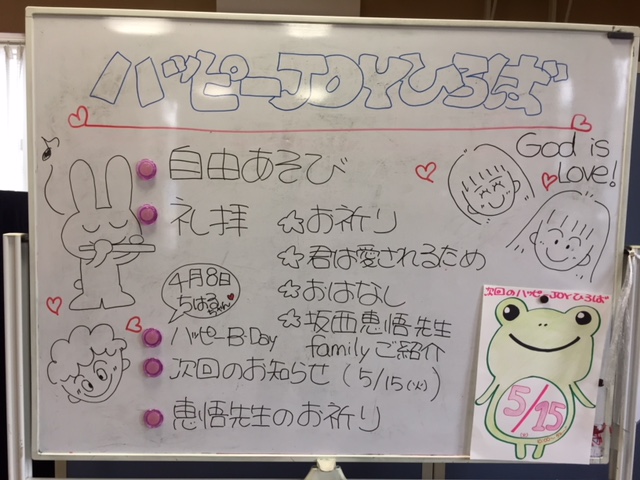 ハッピーJOYひろば
God is
Love!
自由あそび
礼拝
☆お祈り
☆君は愛されるため
☆おはなし
☆坂西恵悟先生
familyご紹介
4月8日
ちはるちゃん
ハッピーB·Day
次回のお知らせ(5/15(火))
恵悟先生のお祈り
次回のハッピーJOYひろば
5/15
(火)